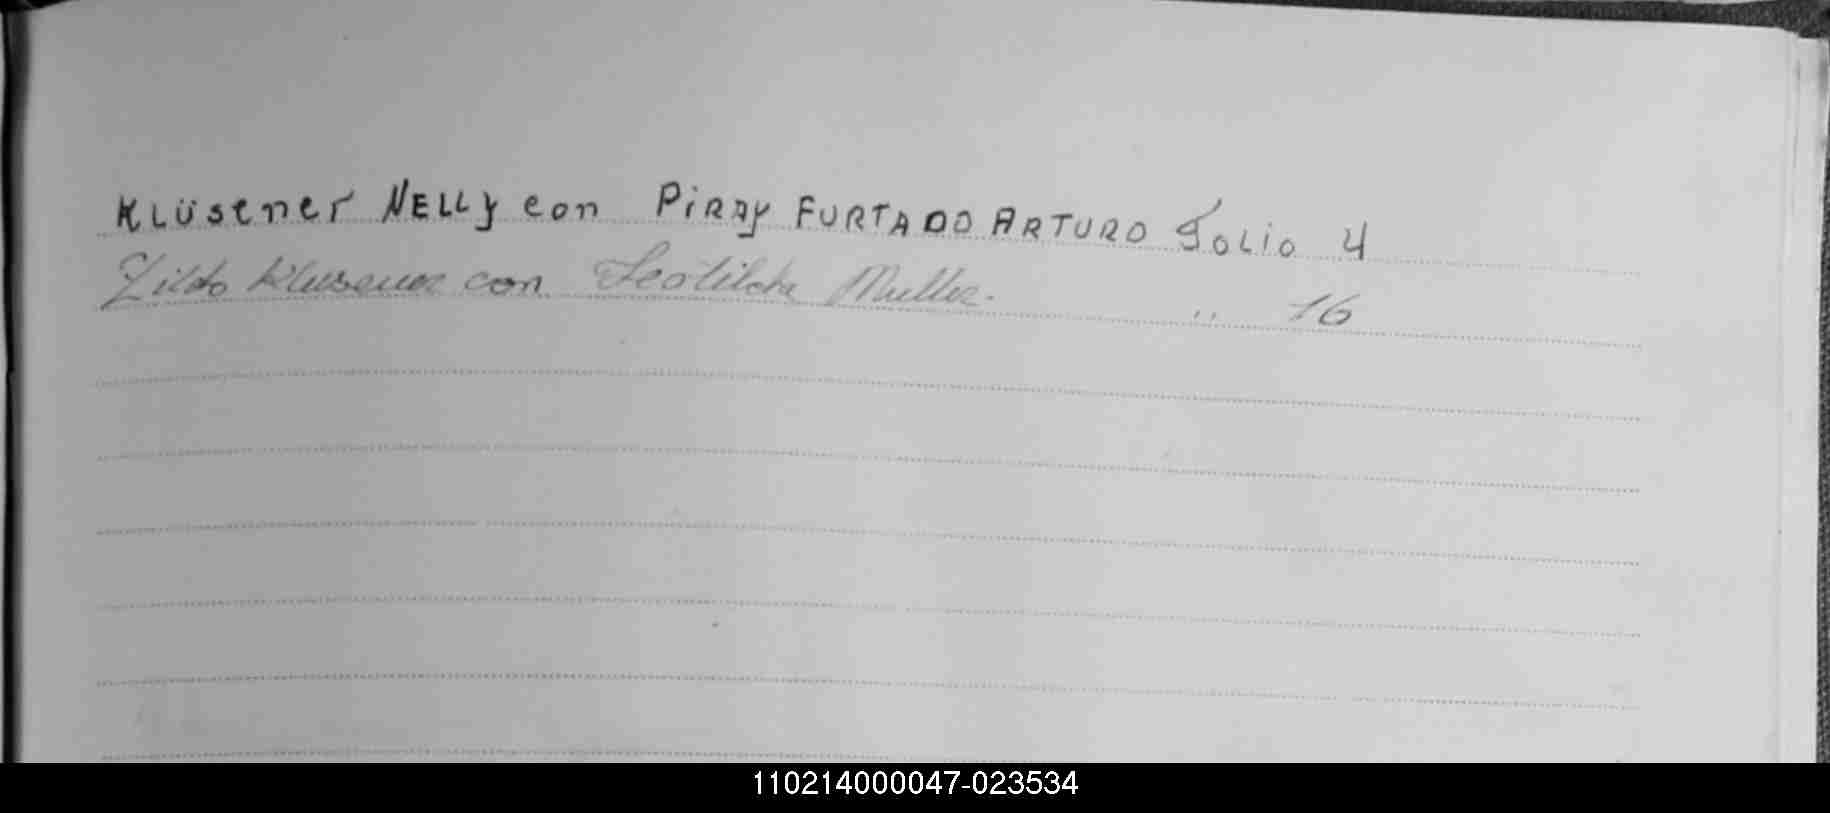 Klüsener NELLY con PiRAY FURTADO ARTURO Folio 4
Zildo Klusener con Leotilda Muller. " 16
110214000047-023534